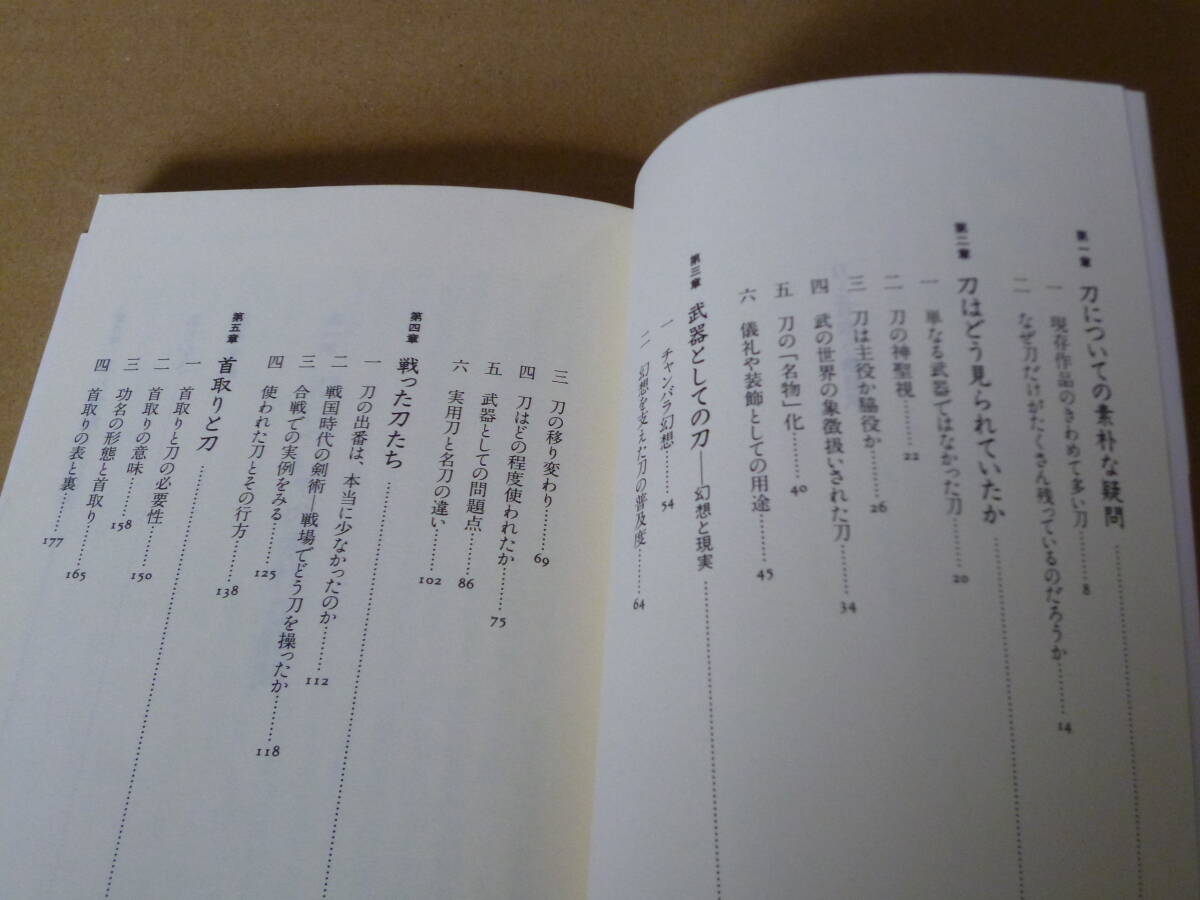 第一章 刀についての素朴な疑問
一 現存作品のきわめて多い刀 8
二 なぜ刀だけがたくさん残っているのだろうか 14
第二章 刀はどう見られていたか
一 単なる武器ではなかった刀 20
二 刀の神聖視 22
三 刀は主役か脇役か 26
四 武の世界の象徴扱いされた刀 34
五 刀の「名物」化 40
六 儀礼や装飾としての用途 45
第三章 武器としての刀――幻想と現実
一 チャンバラ幻想 54
二 幻想を支えた刀の普及度 64
三 刀の移り変わり 69
四 刀はどの程度使われたか 75
五 武器としての問題点 86
六 実用刀と名刀の違い 102
第四章 戦った刀たち
一 刀の出番は、本当に少なかったのか 112
二 戦国時代の剣術―戦場でどう刀を操ったか 118
三 合戦での実例をみる 125
四 使われた刀とその行方 138
第五章 首取りと刀
一 首取りと刀の必要性 150
二 首取りの意味 158
三 功名の形態と首取り 165
四 首取りの表と裏 177